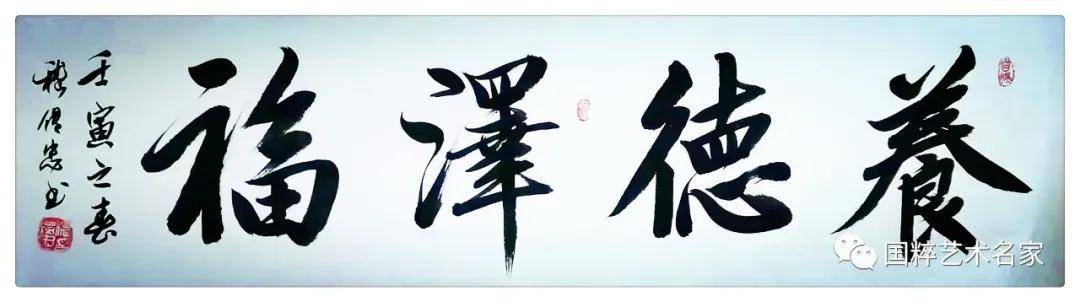 養德澤福
壬寅之春
忠书
国粹艺术名家